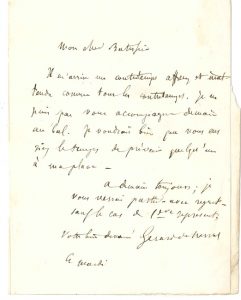 Mon cher
Il m'arrive un contretemps affreux et
comme tous les contretemps. Je ne
puis pas vous accompagner demain
au bal. Je voudrais bien que vous
le temps de prévenir quelqu'un
à ma place –
à demain toujours; je
vous verrai
sauf le cas de 1ère
votre bien dévoué Gérard de Nerval
Ce mardi